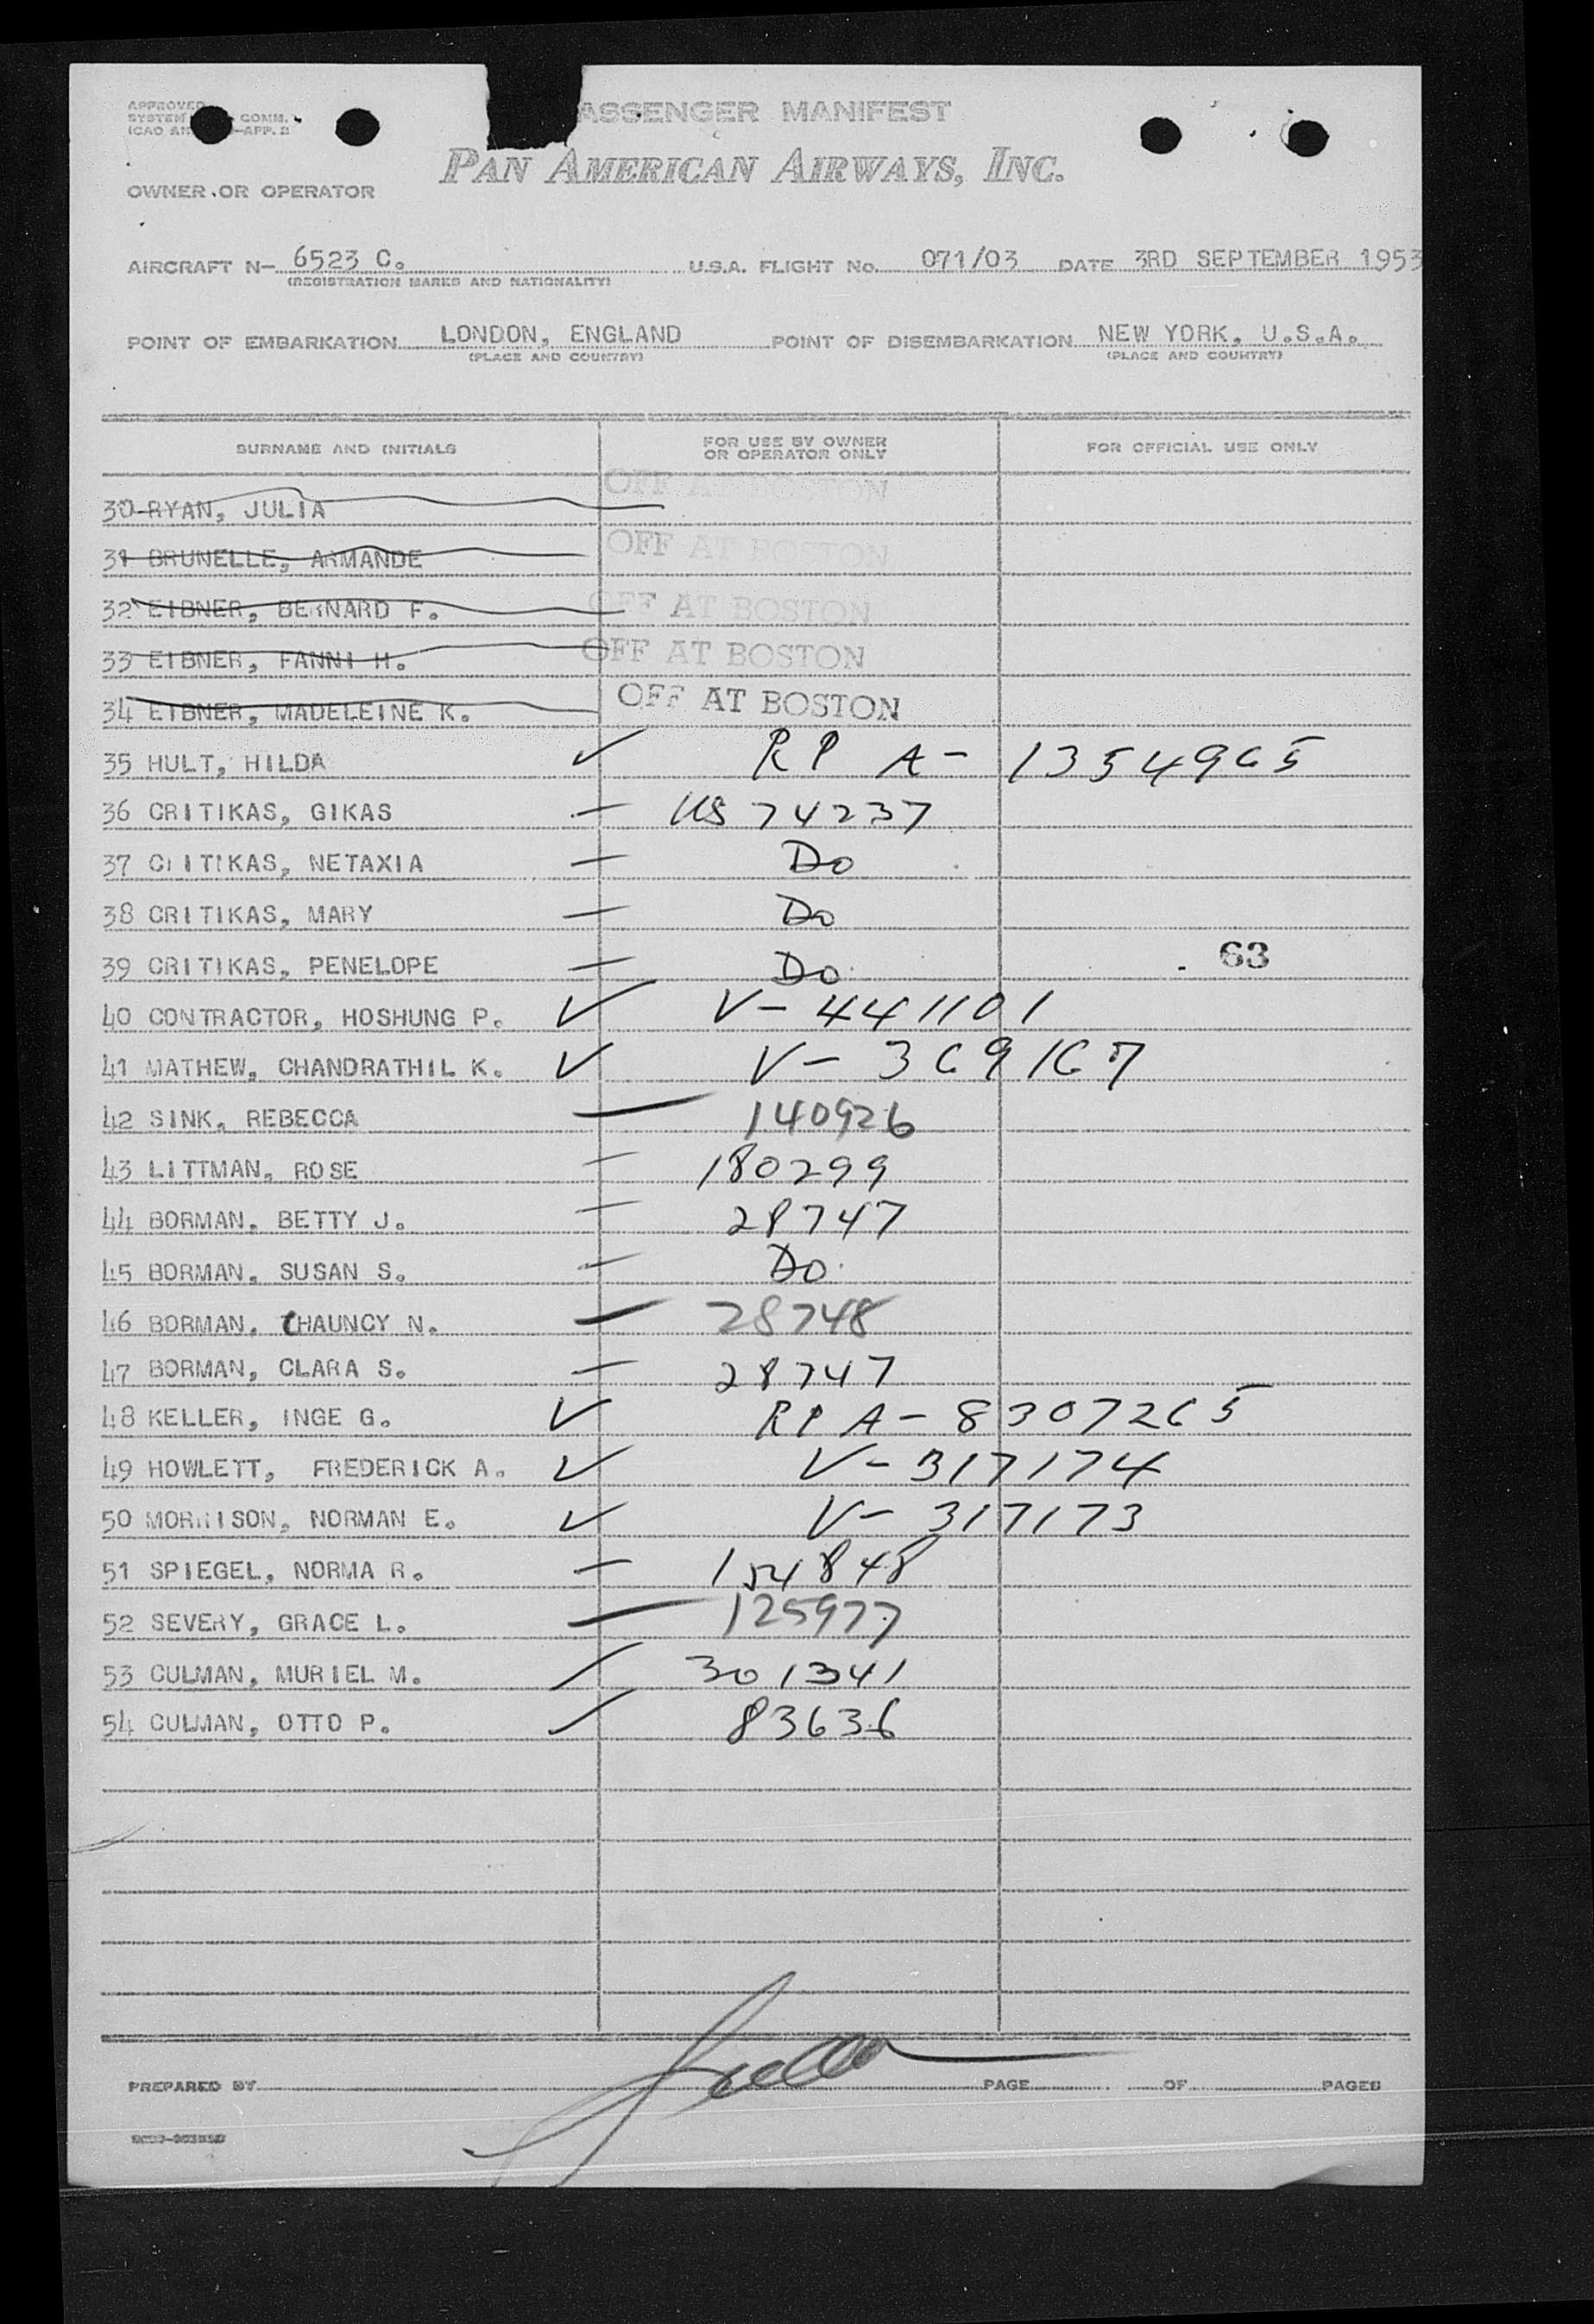 APPROVED
SYSTEM COMM.
ICAO AN -APP. 2
ASSENGER MANIFEST
PAN AMERICAN AIRWAYS, INC.
OWNER OR OPERATOR
AIRCRAFT N- 6523 C. U.S.A. FLIGHT No. 071/03 DATE 3RD SEPTEMBER 1953
(REGISTRATION MARKS AND NATIONALITY)
POINT OF EMBARKATION LONDON, ENGLAND POINT OF DISEMBARKATION NEW YORK, U.S.A.
(PLACE AND COUNTRY) (PLACE AND COUNTRY)
SURNAME AND INITIALS FOR USE BY OWNER OR OPERATOR ONLY FOR OFFICIAL USE ONLY
30 RYAN, JULIA OFF AT BOSTON
31 BRUNELLE, ARMANDE OFF AT BOSTON
32 EIBNER, BERNARD F. OFF AT BOSTON
33 EIBNER, FANNI H. OFF AT BOSTON
34 EIBNER, MADELEINE K. OFF AT BOSTON
35 HULT, HILDA ✓ RP A- 1354965
36 CRITIKAS, GIKAS — US 74237
37 CRITIKAS, NETAXIA — Do
38 CRITIKAS, MARY — Do
39 CRITIKAS, PENELOPE — Do 63
40 CONTRACTOR, HOSHUNG P. ✓ V- 441101
41 MATHEW, CHANDRATHIL K. ✓ V- 369167
42 SINK, REBECCA — 140926
43 LITTMAN, ROSE — 180299
44 BORMAN, BETTY J. — 28747
45 BORMAN, SUSAN S. — Do
46 BORMAN, CHAUNCY N. — 28748
47 BORMAN, CLARA S. — 28747
48 KELLER, INGE G. ✓ RP A- 8307265
49 HOWLETT, FREDERICK A. ✓ V- 317174
50 MORRISON, NORMAN E. ✓ V- 317173
51 SPIEGEL, NORMA R. — 154848
52 SEVERY, GRACE L. — 125977
53 CULMAN, MURIEL M. / 301341
54 CULMAN, OTTO P. / 83636
PREPARED BY PAGE OF PAGES